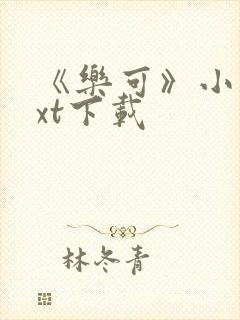 《樂可》小
xt下載
林冬青